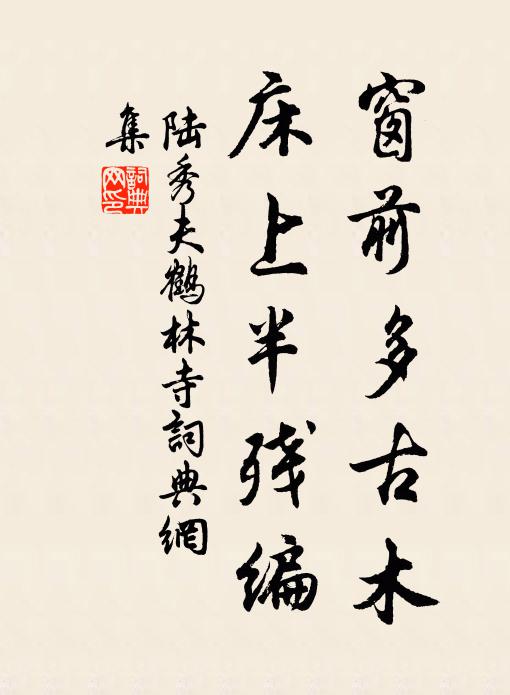 窗前多古木
床上半残编
陆秀夫鹤林寺词典网
集
詞典网印